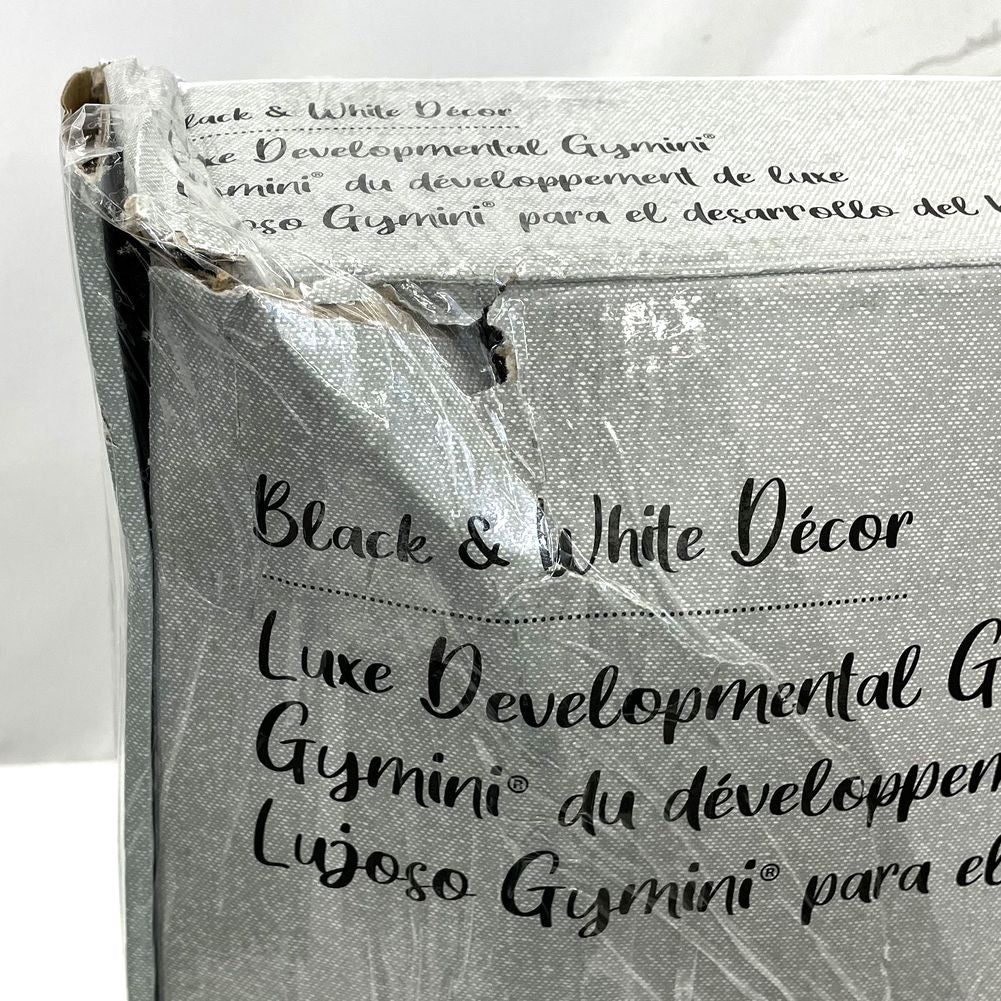 lack & White Décor
xe Developmental Gymini®
mini® du développement de luxe
oso Gymini® para el desarrollo del
Black & White Décor
Luxe Developmental G
Gymini® du développem
Lujoso Gymini® para el